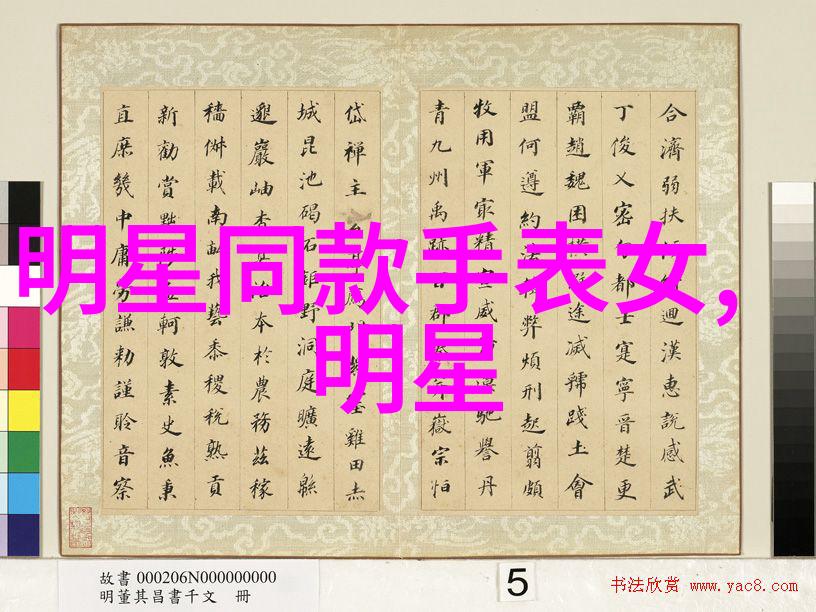 明星同款手表女,
明星
合濟弱扶迴漢惠說感武
丁俊乂密士寔寧晉楚更
霸趙魏困橫途滅虢踐土會
盟何遵約法弊煩刑起翦頗
牧用軍最精宣威漠馳譽丹
青九州禹跡百郡嶽宗恒
岱禪主雞田赤
城昆池碣石鉅野洞庭曠遠緜
邈巖岫杳冥治本於農務茲稼
穡俶載南畝我藝黍稷稅熟貢
新勸賞黜陟孟軻敦素史魚秉
直庶幾中庸勞謙勅謹聆音察
故書 000206N000000000
明董其昌書千文 冊
5
书法欣赏 www.yac8.com